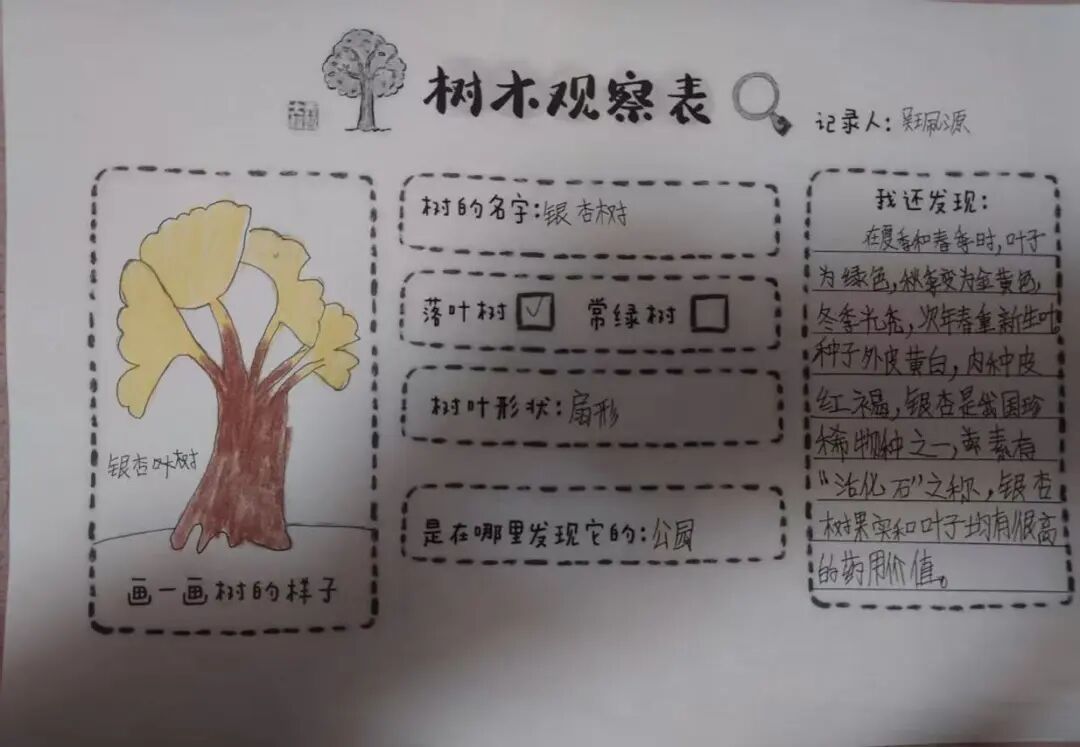 树木观察表
记录人:吴珮源
银杏叶树
画一画树的样子
树的名字:银杏树
落叶树 常绿树
树叶形状:扇形
是在哪里发现它的:公园
我还发现:
在夏季和春季时,叶子
为绿色,秋季变为金黄色,
冬季光秃,次年春重新生叶。
种子外皮黄白,内种皮
红褐,银杏是我国珍
稀物种之一,素有
“活化石”之称,银杏
树果实和叶子均有很高
的药用价值。